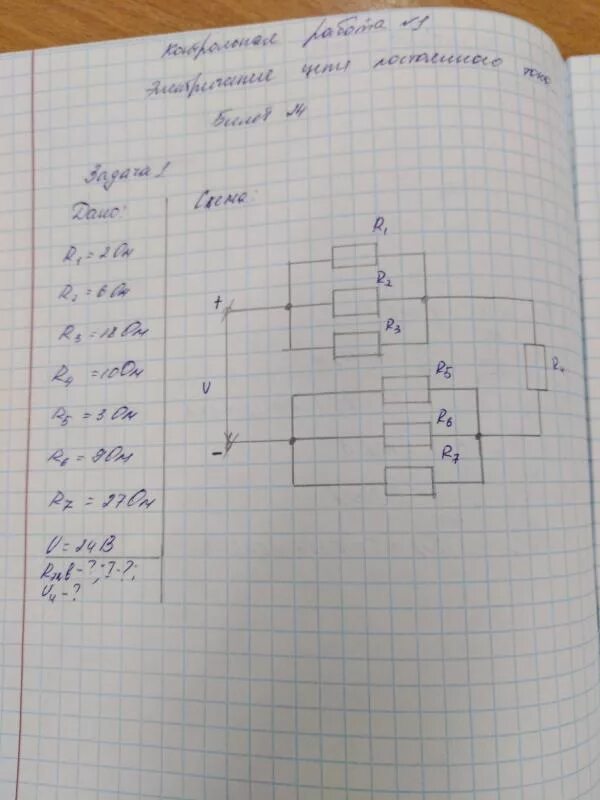 Контрольная работа №1
Электрические цепи постоянного тока
Билет 24
Задача 1
Дано:
R1 = 2 Ом
R2 = 6 Ом
R3 = 18 Ом
R4 = 10 Ом
R5 = 3 Ом
R6 = 9 Ом
R7 = 27 Ом
U = 24 В
Rэкв - ?; I - ?;
U4 - ?
Схема:
R1
R2
R3
R4
R5
R6
R7
+
U
-